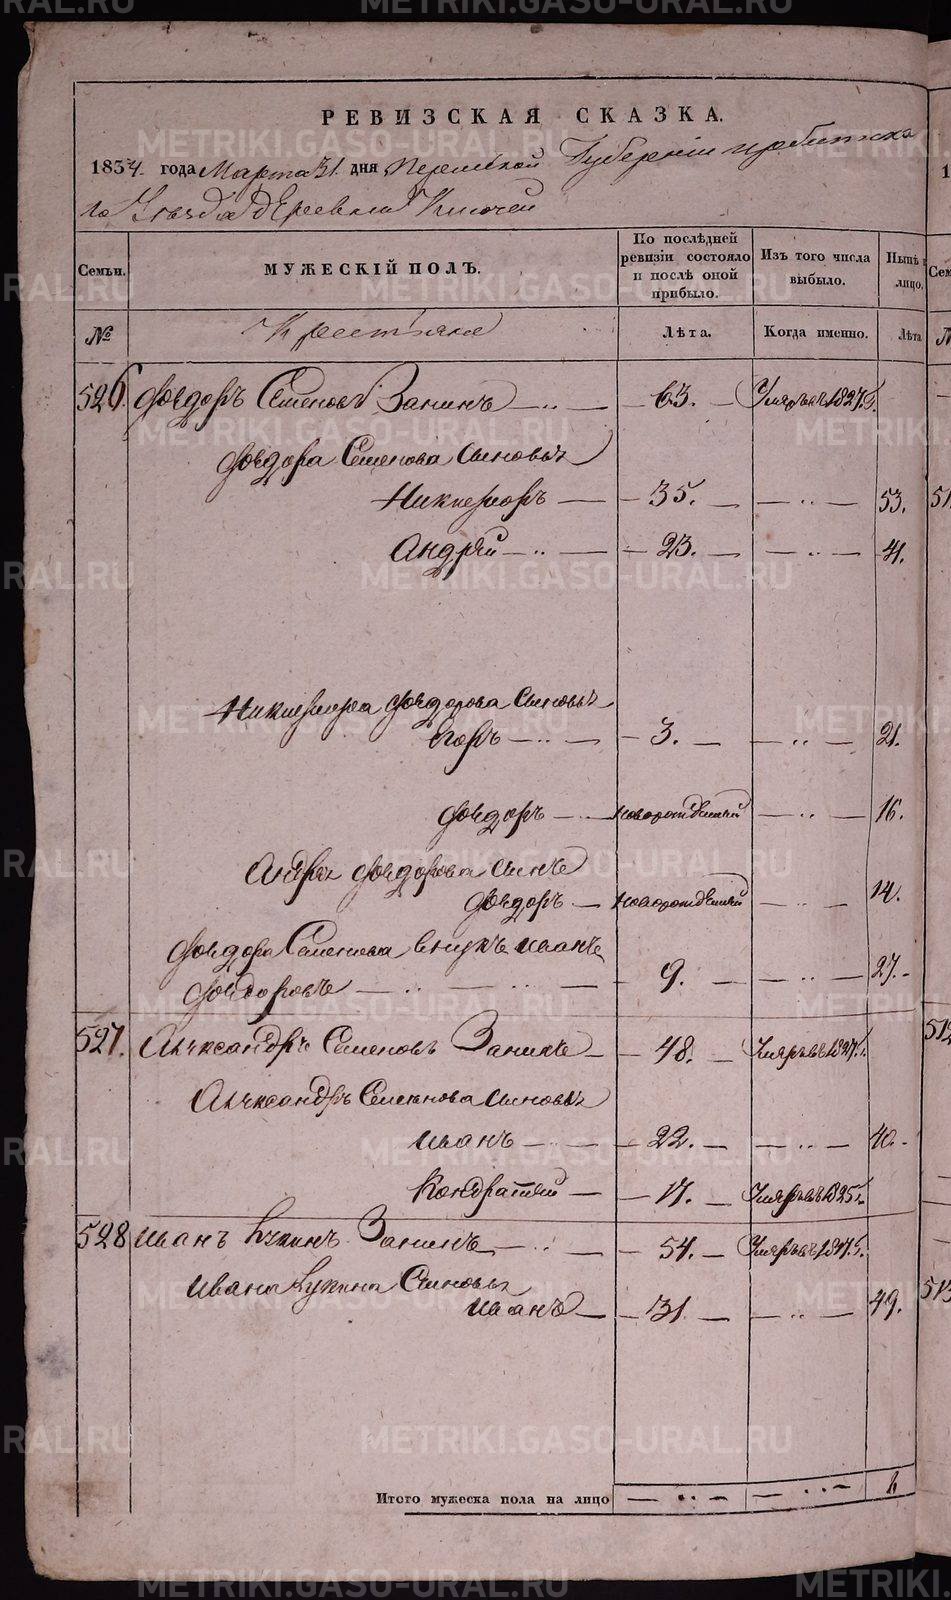 РЕВИЗСКАЯ СКАЗКА.
1834. года Марта 31. дня Пермской Губерніи Ирбитска
го Уезда деревни Ключей
Семьи. МУЖЕСКІЙ ПОЛЪ. По послѣдней ревизіи состояло и послѣ оной прибыло. Изъ того числа выбыло. Нынѣ лицо.
№ Крестьяне Лѣта. Когда именно. Лѣта
526. Фёдоръ Семеновъ Занинъ 63. Умеръ въ 1827 г.
Фёдора Семенова сыновья
Никифоръ 35. 53.
Андрей 23. 41.
Никифора Фёдорова сыновья
Егоръ 3. 21.
Фёдоръ новорожденный 16.
Андрея Фёдорова сынъ
Фёдоръ новорожденный 14.
Фёдора Семенова внукъ Иванъ
Фёдоровъ 9. 27.
527. Александръ Семеновъ Занинъ 48. Умеръ въ 1827 г.
Александръ Семенова сыновья
Иванъ 22. 40.
Кондратей 17. Умеръ въ 1825 г.
528 Иванъ Лукинъ Занинъ 54. Умеръ въ
Ивана Лукина Сыновья
Иванъ 31 49.
Итого мужеска пола на лицо
METRIKI.GASO-URAL.RU